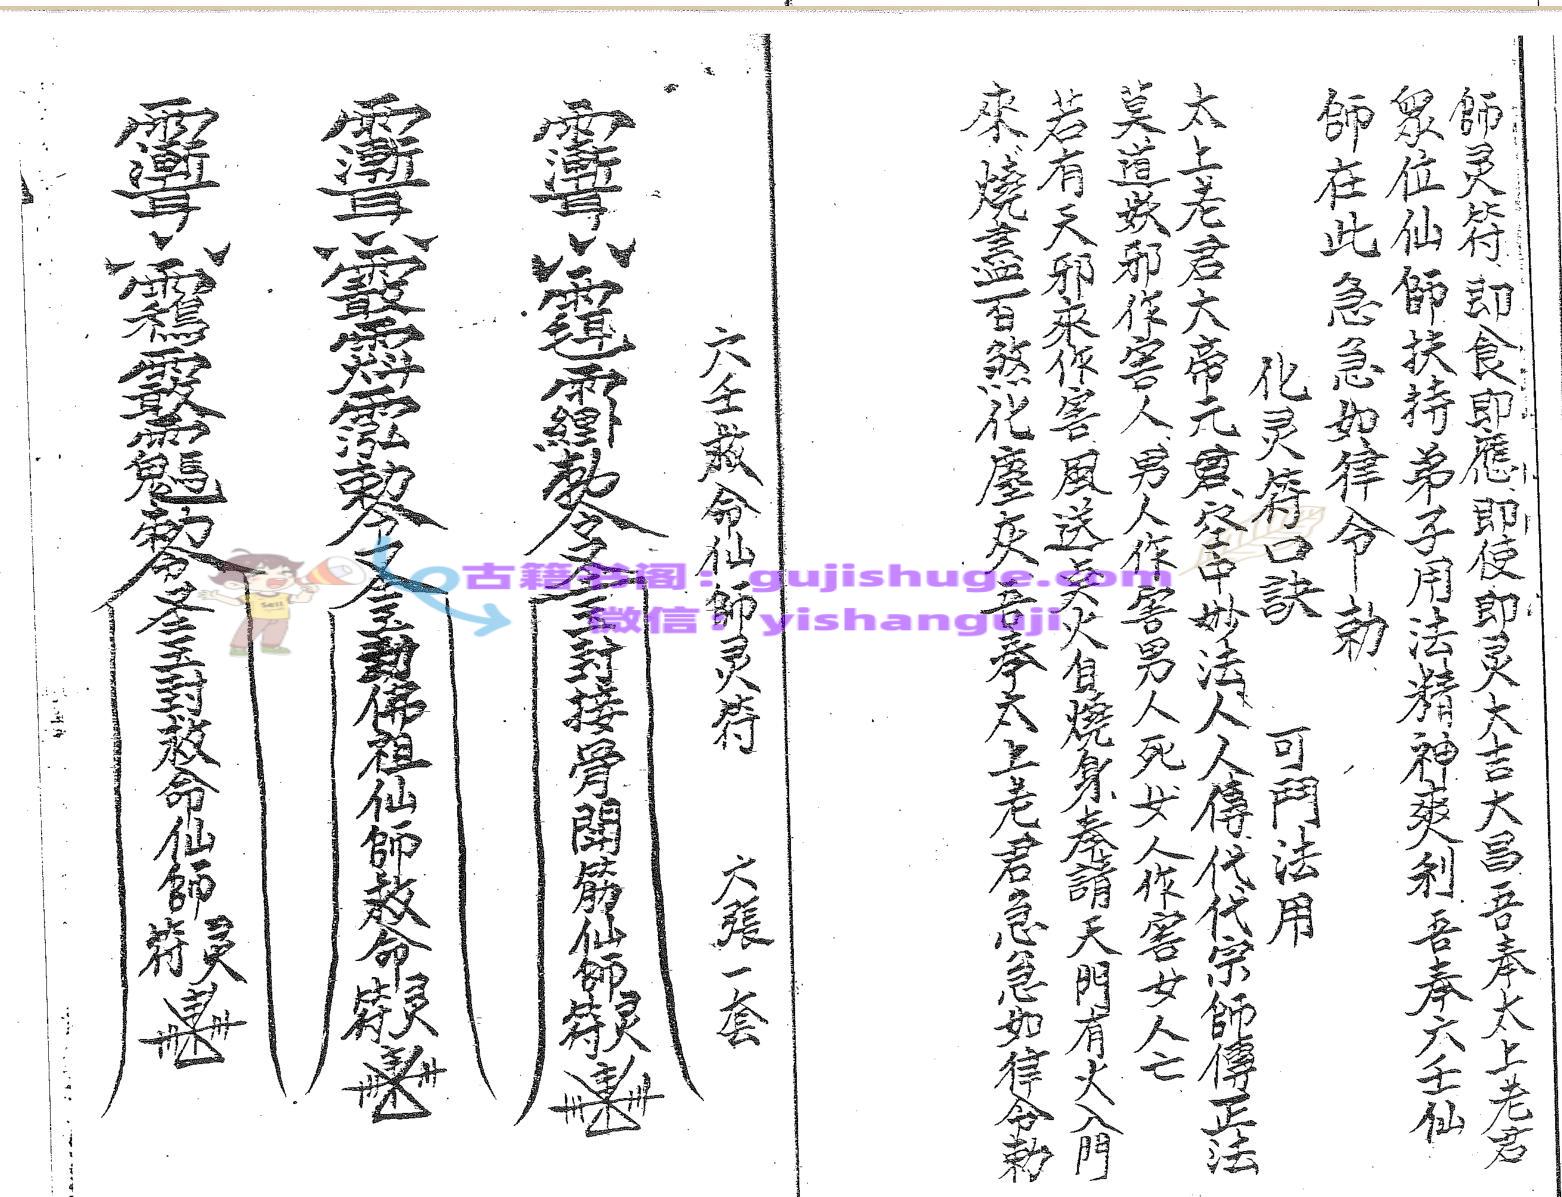 師灵符即食即應即使即灵大吉大昌吾奉太上老君
眾位仙師扶持弟子用法精神爽利吾奉六壬仙
師在此急急如律令勅
化灵符口訣 可鬥法用
太上老君大帝元君妙法人人傳代代宗師傳正法
莫道妖邪作害人男人作害男人死女人作害女人亡
若有天邪來作害風送去火自燒身奉請天門有火入門
來燒盡百煞化塵灰吾奉太上老君急急如律令勅
六壬救命仙師灵符 六張一套
勅令 封接骨開筋仙師灵符
勅令 佛祖仙師救命灵符
勅令 封救命仙師灵符
古籍书阁：gujishuge.com
微信：yishanguji